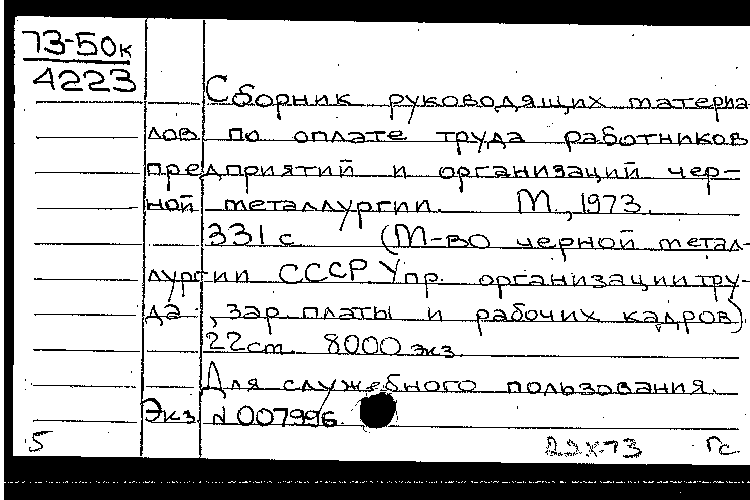 73-50к
4223
Сборник руководящих материа
лов по оплате труда работников
предприятий и организаций чер-
ной металлургии. М., 1973.
331 с (М-во черной метал-
лургии СССР Упр. организации тру-
да, зар. платы и рабочих кадров)
22 см. 8000 экз.
Для служебного пользования.
Экз N 007996
5 22 X-73 Гс